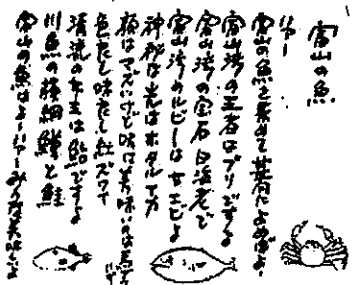 富山の魚
ハアー
富山の魚を集めて甚句によめばよー
富山湾の王者はブリですよ
富山湾の宝石白海老で
富山湾のルビーは甘エビよ
神秘な光はホタルイカ
顔はマズイけど味は美味いのは
色良し味良し紅ズワイ
清流の女王は鮎ですよ
川魚の横綱鱒と鮭
富山の魚はよーハアーみな美味いよ